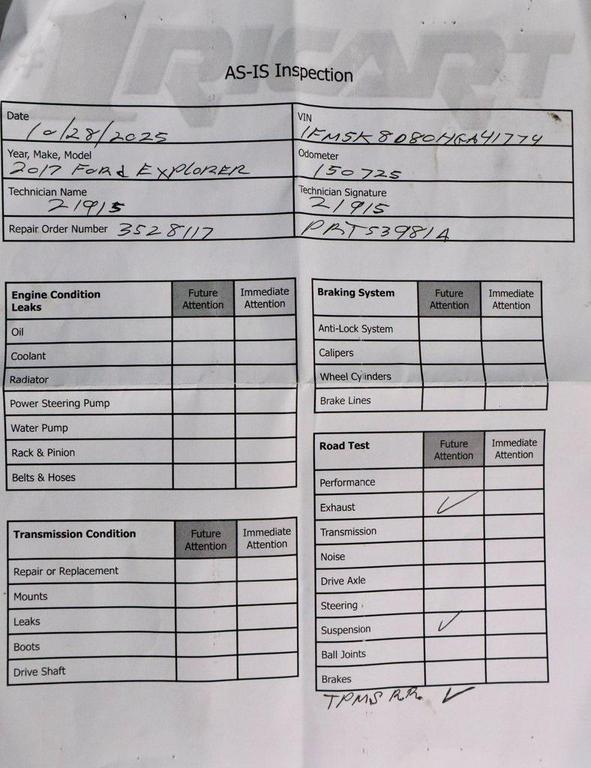 #1 RICART
AS-IS Inspection
Date
10/28/2025
VIN
1FM5K8D80HGA41774
Year, Make, Model
2017 FORd EXPLORER
Odometer
150725
Technician Name
21915
Technician Signature
21915
Repair Order Number 3528117
PRT53981A
Engine Condition
Leaks
Future
Attention
Immediate
Attention
Oil
Coolant
Radiator
Power Steering Pump
Water Pump
Rack & Pinion
Belts & Hoses
Transmission Condition
Future
Attention
Immediate
Attention
Repair or Replacement
Mounts
Leaks
Boots
Drive Shaft
Braking System
Future
Attention
Immediate
Attention
Anti-Lock System
Calipers
Wheel Cylinders
Brake Lines
Road Test
Future
Attention
Immediate
Attention
Performance
Exhaust ✓
Transmission
Noise
Drive Axle
Steering
Suspension ✓
Ball Joints
Brakes
TPMS RR ✓